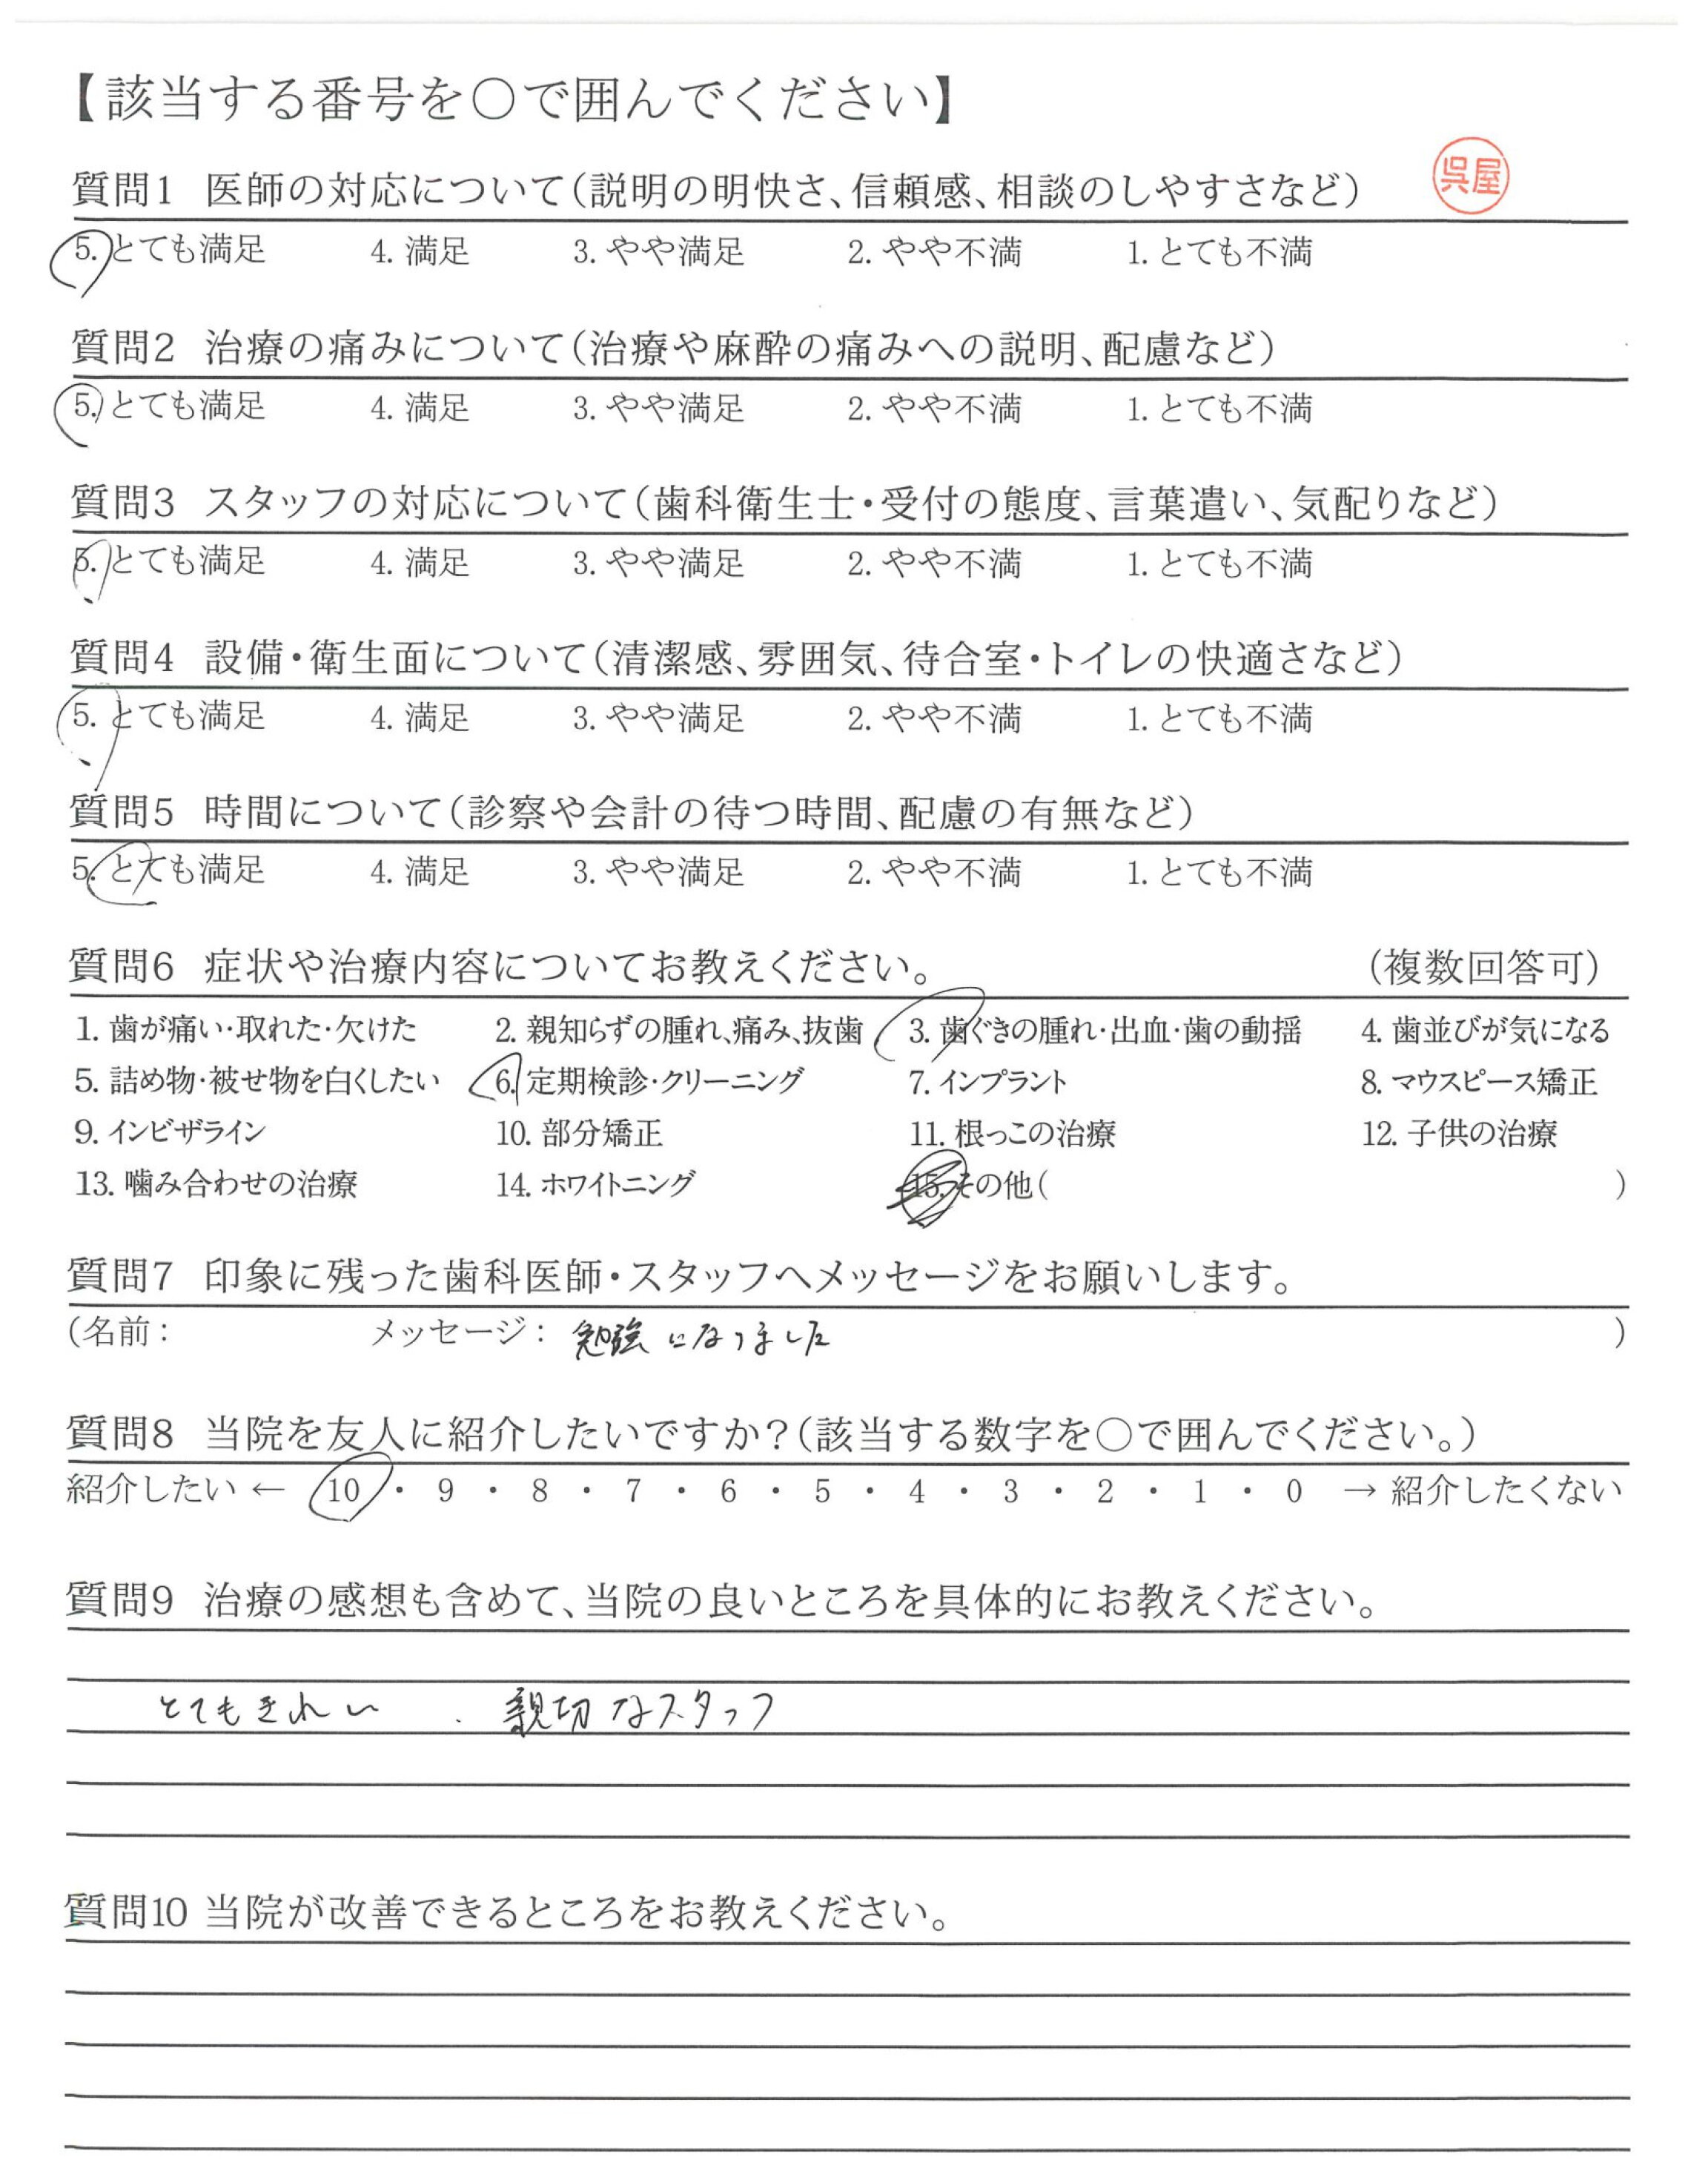 【該当する番号を○で囲んでください】
質問1 医師の対応について(説明の明快さ、信頼感、相談のしやすさなど)
呉屋
5. とても満足 4. 満足 3. やや満足 2. やや不満 1. とても不満
質問2 治療の痛みについて(治療や麻酔の痛みへの説明、配慮など)
5. とても満足 4. 満足 3. やや満足 2. やや不満 1. とても不満
質問3 スタッフの対応について(歯科衛生士・受付の態度、言葉遣い、気配りなど)
5. とても満足 4. 満足 3. やや満足 2. やや不満 1. とても不満
質問4 設備・衛生面について(清潔感、雰囲気、待合室・トイレの快適さなど)
5. とても満足 4. 満足 3. やや満足 2. やや不満 1. とても不満
質問5 時間について(診察や会計の待つ時間、配慮の有無など)
5. とても満足 4. 満足 3. やや満足 2. やや不満 1. とても不満
質問6 症状や治療内容についてお教えください。 (複数回答可)
1. 歯が痛い・取れた・欠けた 2. 親知らずの腫れ、痛み、抜歯 3. 歯ぐきの腫れ・出血・歯の動揺 4. 歯並びが気になる
5. 詰め物・被せ物を白くしたい 6. 定期検診・クリーニング 7. インプラント 8. マウスピース矯正
9. インビザライン 10. 部分矯正 11. 根っこの治療 12. 子供の治療
13. 噛み合わせの治療 14. ホワイトニング 15. その他( )
質問7 印象に残った歯科医師・スタッフへメッセージをお願いします。
(名前: メッセージ: 勉強になりました )
質問8 当院を友人に紹介したいですか?(該当する数字を○で囲んでください。)
紹介したい ← 10 ・ 9 ・ 8 ・ 7 ・ 6 ・ 5 ・ 4 ・ 3 ・ 2 ・ 1 ・ 0 → 紹介したくない
質問9 治療の感想も含めて、当院の良いところを具体的にお教えください。
とてもきれい . 親切なスタッフ
質問10 当院が改善できるところをお教えください。